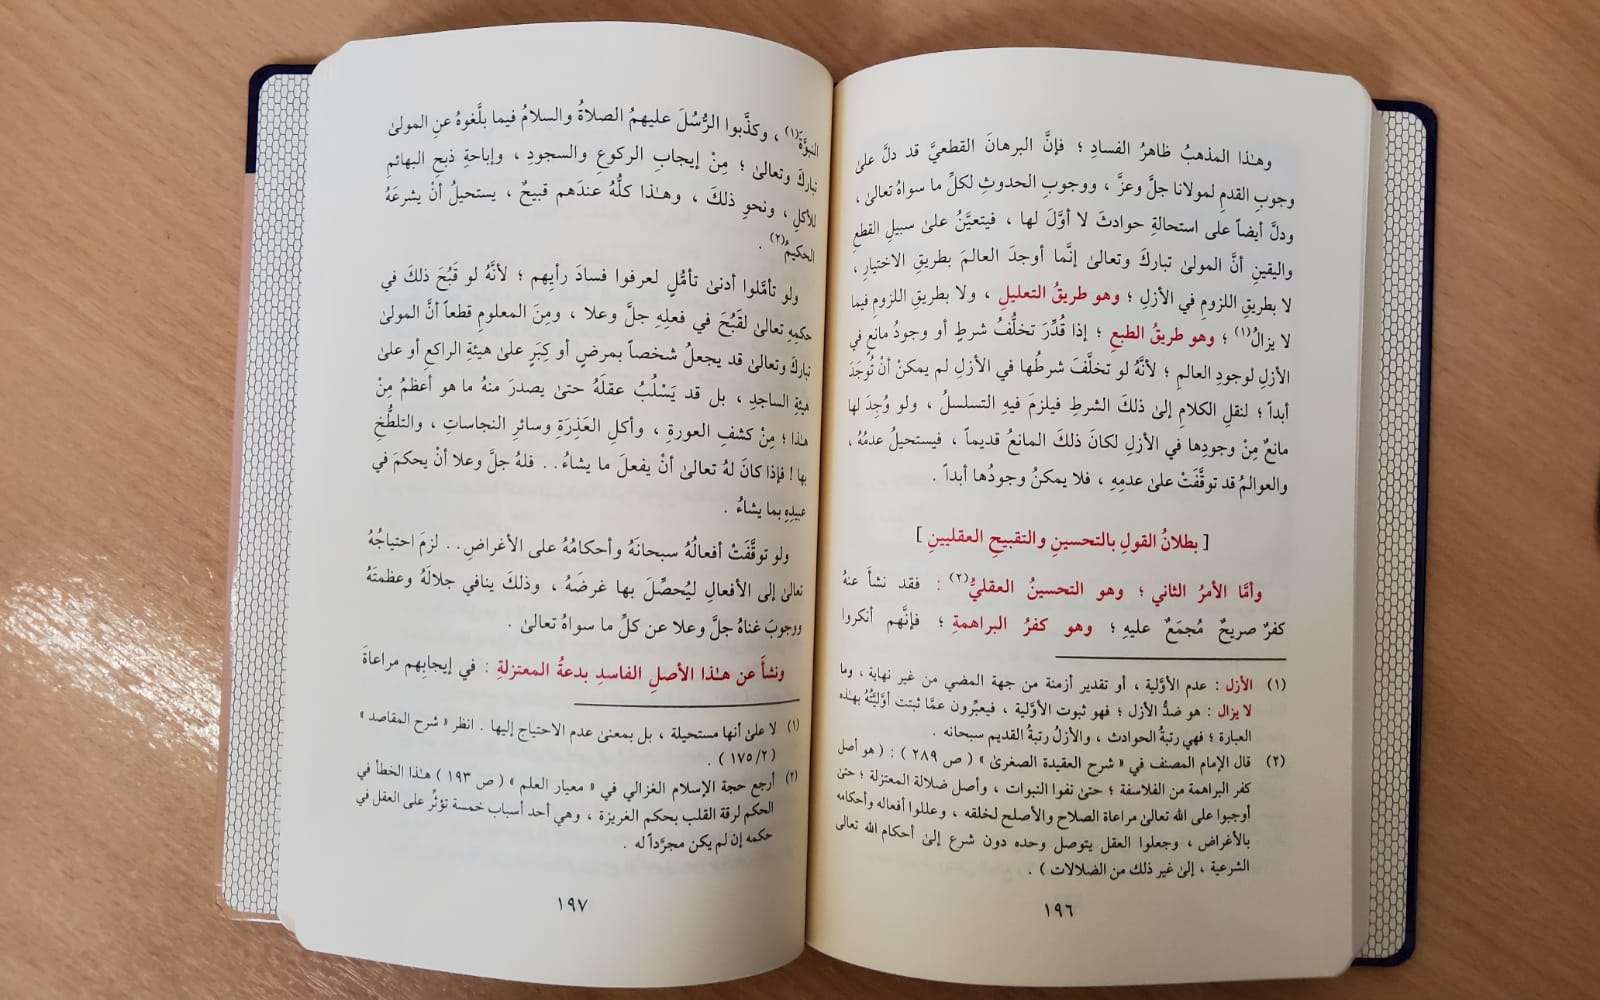 وهـٰذا المذهبُ ظاهرُ الفسادِ ؛ فإنَّ البرهانَ القطعيَّ قد دلَّ علىٰ
وجوبِ القدمِ لمولانا جلَّ وعزَّ ، ووجوبِ الحدوثِ لكلِّ ما سواهُ تعالىٰ ،
ودلَّ أيضاً على استحالةِ حوادثَ لا أوَّلَ لها ، فيتعيَّنُ علىٰ سبيلِ القطعِ
واليقينِ أنَّ المولىٰ تباركَ وتعالىٰ إنَّما أوجدَ العالمَ بطريقِ الاختيارِ ،
لا بطريقِ اللزومِ في الأزلِ ؛ وهو طريقُ التعليلِ ، ولا بطريقِ اللزومِ فيما
لا يزالُ(١) ؛ وهو طريقُ الطبعِ ؛ إذا قُدِّرَ تخلُّفُ شرطٍ أو وجودُ مانعٍ في
الأزلِ لوجودِ العالمِ ؛ لأنَّهُ لو تخلَّفَ شرطُها في الأزلِ لم يمكنْ أنْ تُوجَدَ
أبداً ؛ لنقلِ الكلامِ إلىٰ ذلكَ الشرطِ فيلزمَ فيهِ التسلسلُ ، ولو وُجِدَ لها
مانعٌ مِنْ وجودِها في الأزلِ لكانَ ذلكَ المانعُ قديماً ، فيستحيلُ عدمُهُ ،
والعوالمُ قد توقَّفَتْ علىٰ عدمِهِ ، فلا يمكنُ وجودُها أبداً .
[ بطلانُ القولِ بالتحسينِ والتقبيحِ العقليينِ ]
وأمَّا الأمرُ الثاني ؛ وهو التحسينُ العقليُّ(٢) : فقد نشأَ عنهُ
كفرٌ صريحٌ مُجمَعٌ عليهِ ؛ وهو كفرُ البراهمةِ ؛ فإنَّهم أنكروا
(١) الأزل : عدم الأوَّلية ، أو تقدير أزمنة من جهة المضي من غير نهاية ، وما
لا يزال : هو ضدُّ الأزل ؛ فهو ثبوت الأوَّلية ، فيعبِّرون عمَّا ثبتت أوَّليَّتُهُ بهـٰذه
العبارة ؛ فهي رتبةُ الحوادث ، والأزلُ رتبةُ القديم سبحانه .
(٢) قال الإمام المصنف في « شرح العقيدة الصغرىٰ » ( ص ٢٨٩ ) : ( هو أصل
كفر البراهمة من الفلاسفة ؛ حتىٰ نفوا النبوات ، وأصل ضلالة المعتزلة ؛ حتىٰ
أوجبوا على الله تعالىٰ مراعاة الصلاح والأصلح لخلقه ، وعللوا أفعاله وأحكامه
بالأغراض ، وجعلوا العقل يتوصل وحده دون شرع إلىٰ أحكام الله تعالى
الشرعية ، إلىٰ غير ذلك من الضلالات ) .
١٩٦
النبوَّةَ(١) ، وكذَّبوا الرُّسُلَ عليهمُ الصلاةُ والسلامُ فيما بلَّغوهُ عنِ المولىٰ
تباركَ وتعالىٰ ؛ مِنْ إيجابِ الركوعِ والسجودِ ، وإباحةِ ذبحِ البهائمِ
للأكلِ ، ونحوِ ذلكَ ، وهـٰذا كلُّهُ عندَهم قبيحٌ ، يستحيلُ أنْ يشرعَهُ
الحكيمُ(٢) .
ولو تأمَّلوا أدنىٰ تأمُّلٍ لعرفوا فسادَ رأيِهم ؛ لأنَّهُ لو قَبُحَ ذلكَ في
حكمِهِ تعالىٰ لقَبُحَ في فعلِهِ جلَّ وعلا ، ومِنَ المعلومِ قطعاً أنَّ المولىٰ
تباركَ وتعالىٰ قد يجعلُ شخصاً بمرضٍ أو كِبَرٍ علىٰ هيئةِ الراكعِ أو علىٰ
هيئةِ الساجدِ ، بل قد يَسْلُبُ عقلَهُ حتىٰ يصدرَ منهُ ما هو أعظمُ مِنْ
هـٰذا ؛ مِنْ كشفِ العورةِ ، وأكلِ العَذِرَةِ وسائرِ النجاساتِ ، والتلطُّخِ
بها ! فإذا كانَ لهُ تعالىٰ أنْ يفعلَ ما يشاءُ . . فلهُ جلَّ وعلا أنْ يحكمَ في
عبيدِهِ بما يشاءُ .
ولو توقَّفَتْ أفعالُهُ سبحانَهُ وأحكامُهُ على الأغراضِ . . لزمَ احتياجُهُ
تعالىٰ إلى الأفعالِ ليُحصِّلَ بها غرضَهُ ، وذلكَ ينافي جلالَهُ وعظمتَهُ
ووجوبَ غناهُ جلَّ وعلا عن كلِّ ما سواهُ تعالىٰ .
ونشأَ عن هـٰذا الأصلِ الفاسدِ بدعةُ المعتزلةِ : في إيجابِهم مراعاةَ
(١) لا علىٰ أنها مستحيلة ، بل بمعنىٰ عدم الاحتياج إليها . انظر « شرح المقاصد »
( ٢/ ١٧٥ ) .
(٢) أرجع حجة الإسلام الغزالي في « معيار العلم » ( ص ١٩٣ ) هـٰذا الخطأ في
الحكم لرقة القلب بحكم الغريزة ، وهي أحد أسباب خمسة تؤثِّر على العقل في
حكمه إن لم يكن مجرَّداً له .
١٩٧